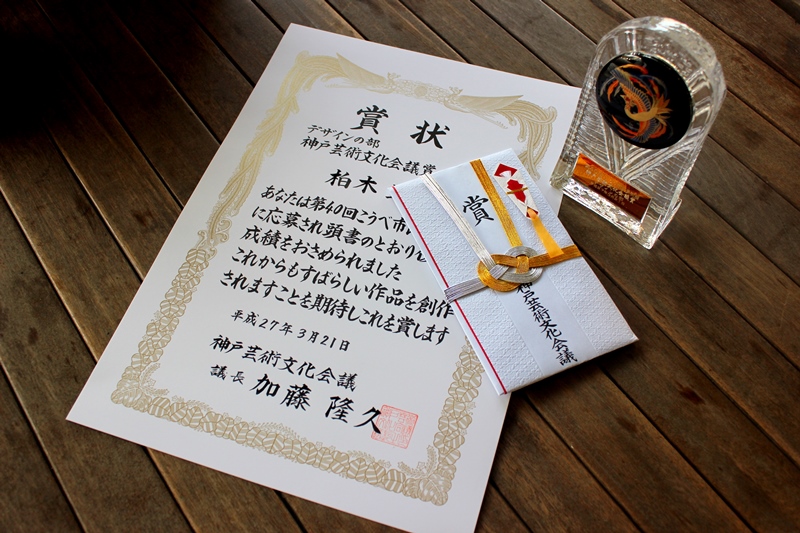 賞状
デザインの部
神戸芸術文化会議賞
柏木
あなたは第40回こうべ市
に応募され頭書のとおり
成績をおさめられました
これからもすばらしい作品を創作
されますことを期待しこれを賞します
平成27年3月21日
神戸芸術文化会議
議長 加藤 隆久
賞
神戸芸術文化会議